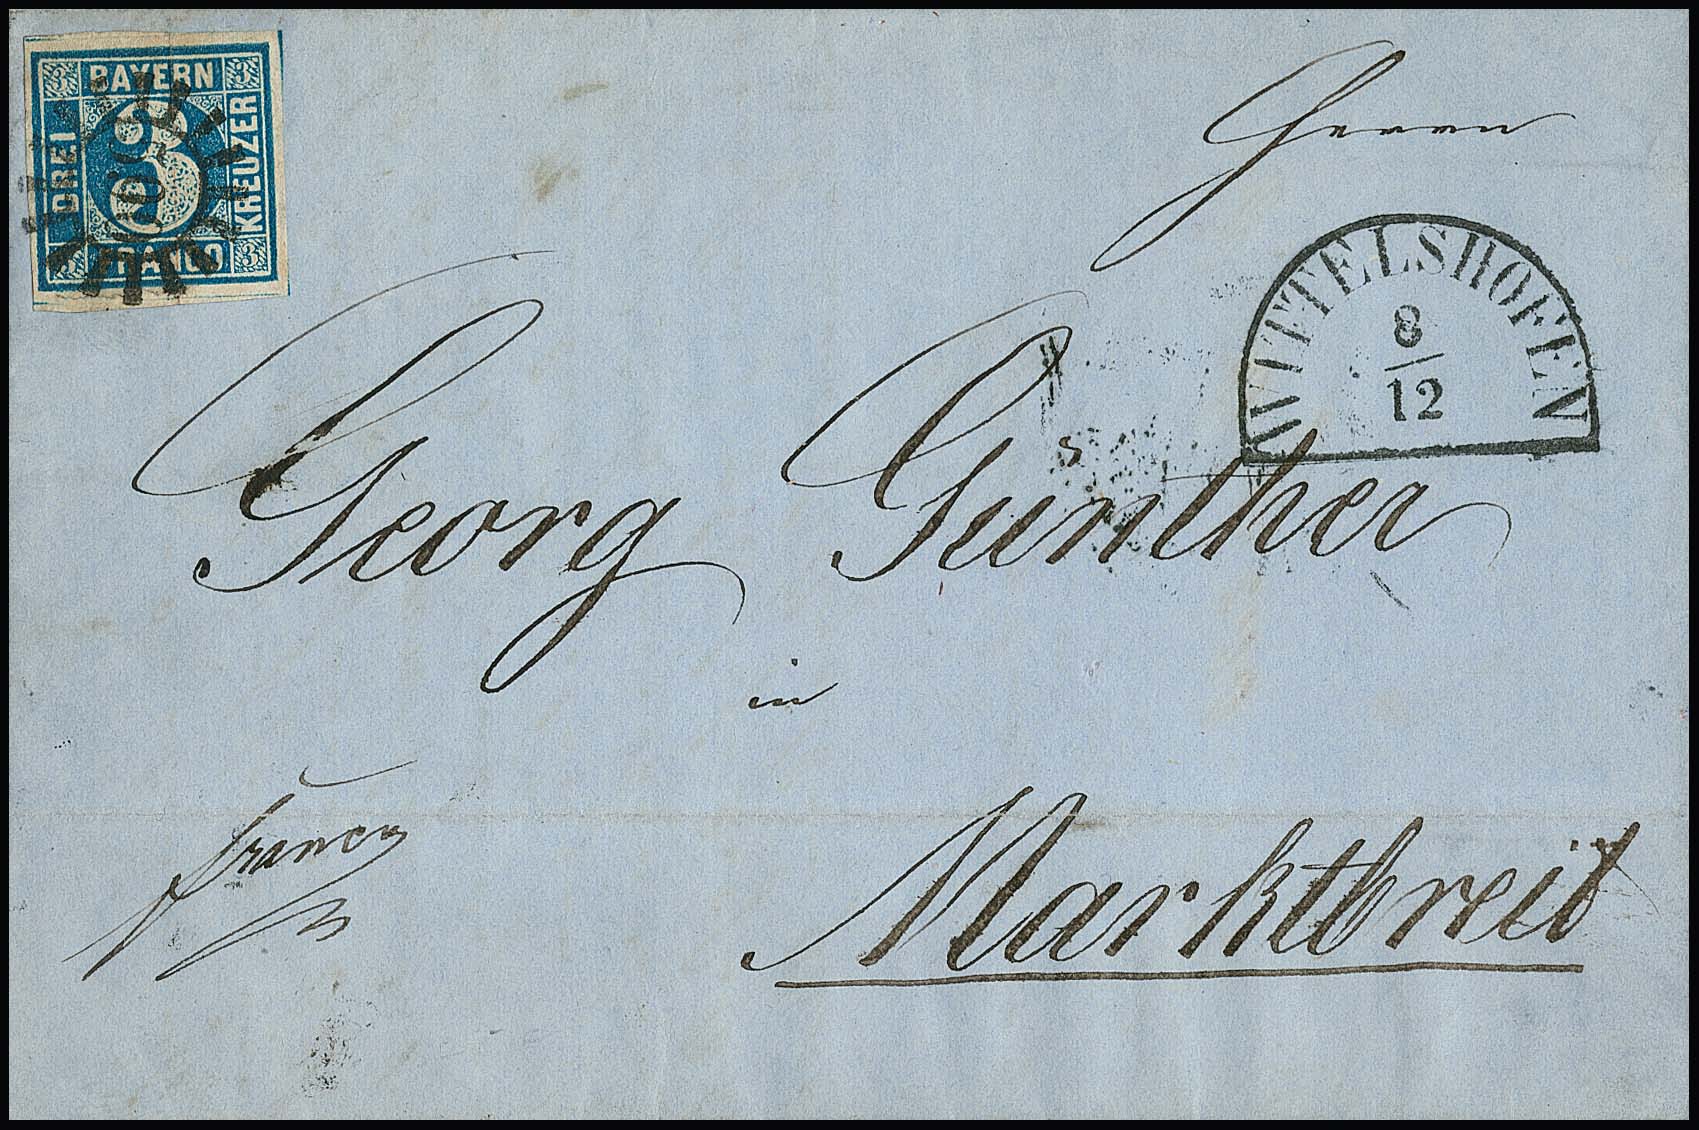 3 BAYERN 3
DREI 3 KREUZER
3 FRANCO 3
Herrn
WITTELSHOFEN
8
12
Georg Günther
in
franco
Marktbreit